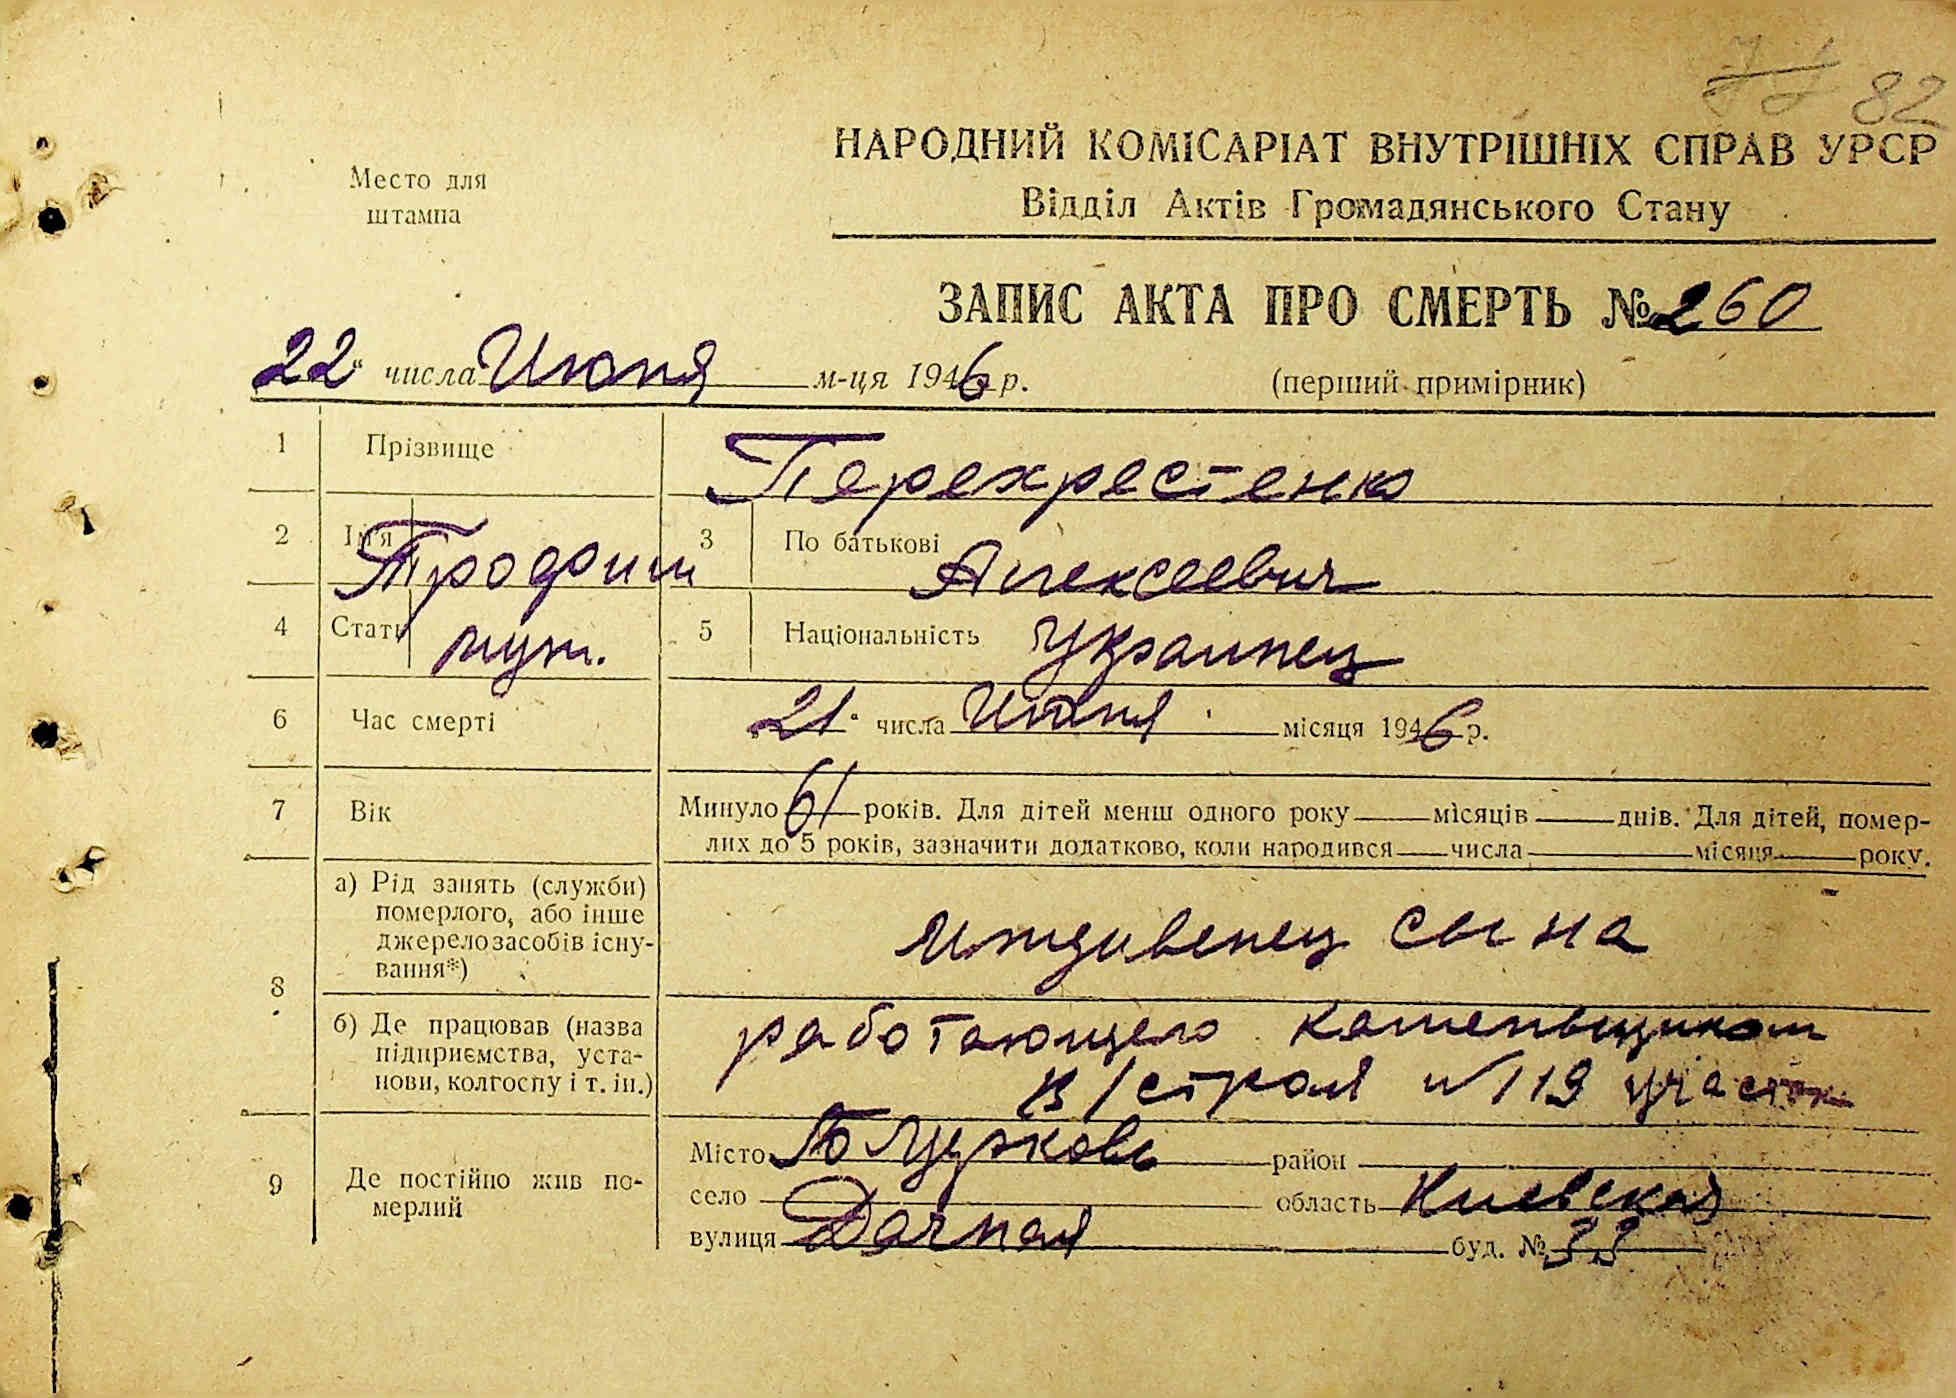 82
Место для
штампа
НАРОДНИЙ КОМІСАРІАТ ВНУТРІШНІХ СПРАВ УРСР
Відділ Актів Громадянського Стану
ЗАПИС АКТА ПРО СМЕРТЬ № 260
22 " числа Июня м-ця 1946 р.
(перший примірник)
1 Прізвище Перехрестенко
2 Ім'я Трофим 3 По батькові Алексеевич
4 Стать муж. 5 Національність Украинец
6 Час смерті 21 " числа Июня місяця 1946 р.
7 Вік Минуло 61 років. Для дітей менш одного року місяців днів. Для дітей, помер-
лих до 5 років, зазначити додатково, коли народився числа місяця року.
8 а) Рід занять (служби)
померлого, або інше
джерело засобів існу-
вання*)
иждивенец сына
б) Де працював (назва
підприємства, уста-
нови, колгоспу і т. ін.)
работающего каменьщиком
в/строй № 119 участок
9 Де постійно жив по-
мерлий
Місто Б Церковь район
село область Киевская
вулиця Дачная буд. № 33